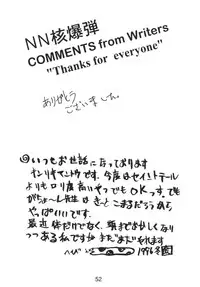 NN核爆弾
COMMENTS from Writers
"Thanks for everyone"
ありがとう
ございました。
いつもお世話になっております
今度はセイントテール
よりもロリ度高いやつでもOKっす。でも
がちょ〜ん先生はきっとこまるだろうから
やっぱいいです。
最近体だけでなく、頭までおかしくなり
つつある私ですがまだまだやれます
1996冬
52